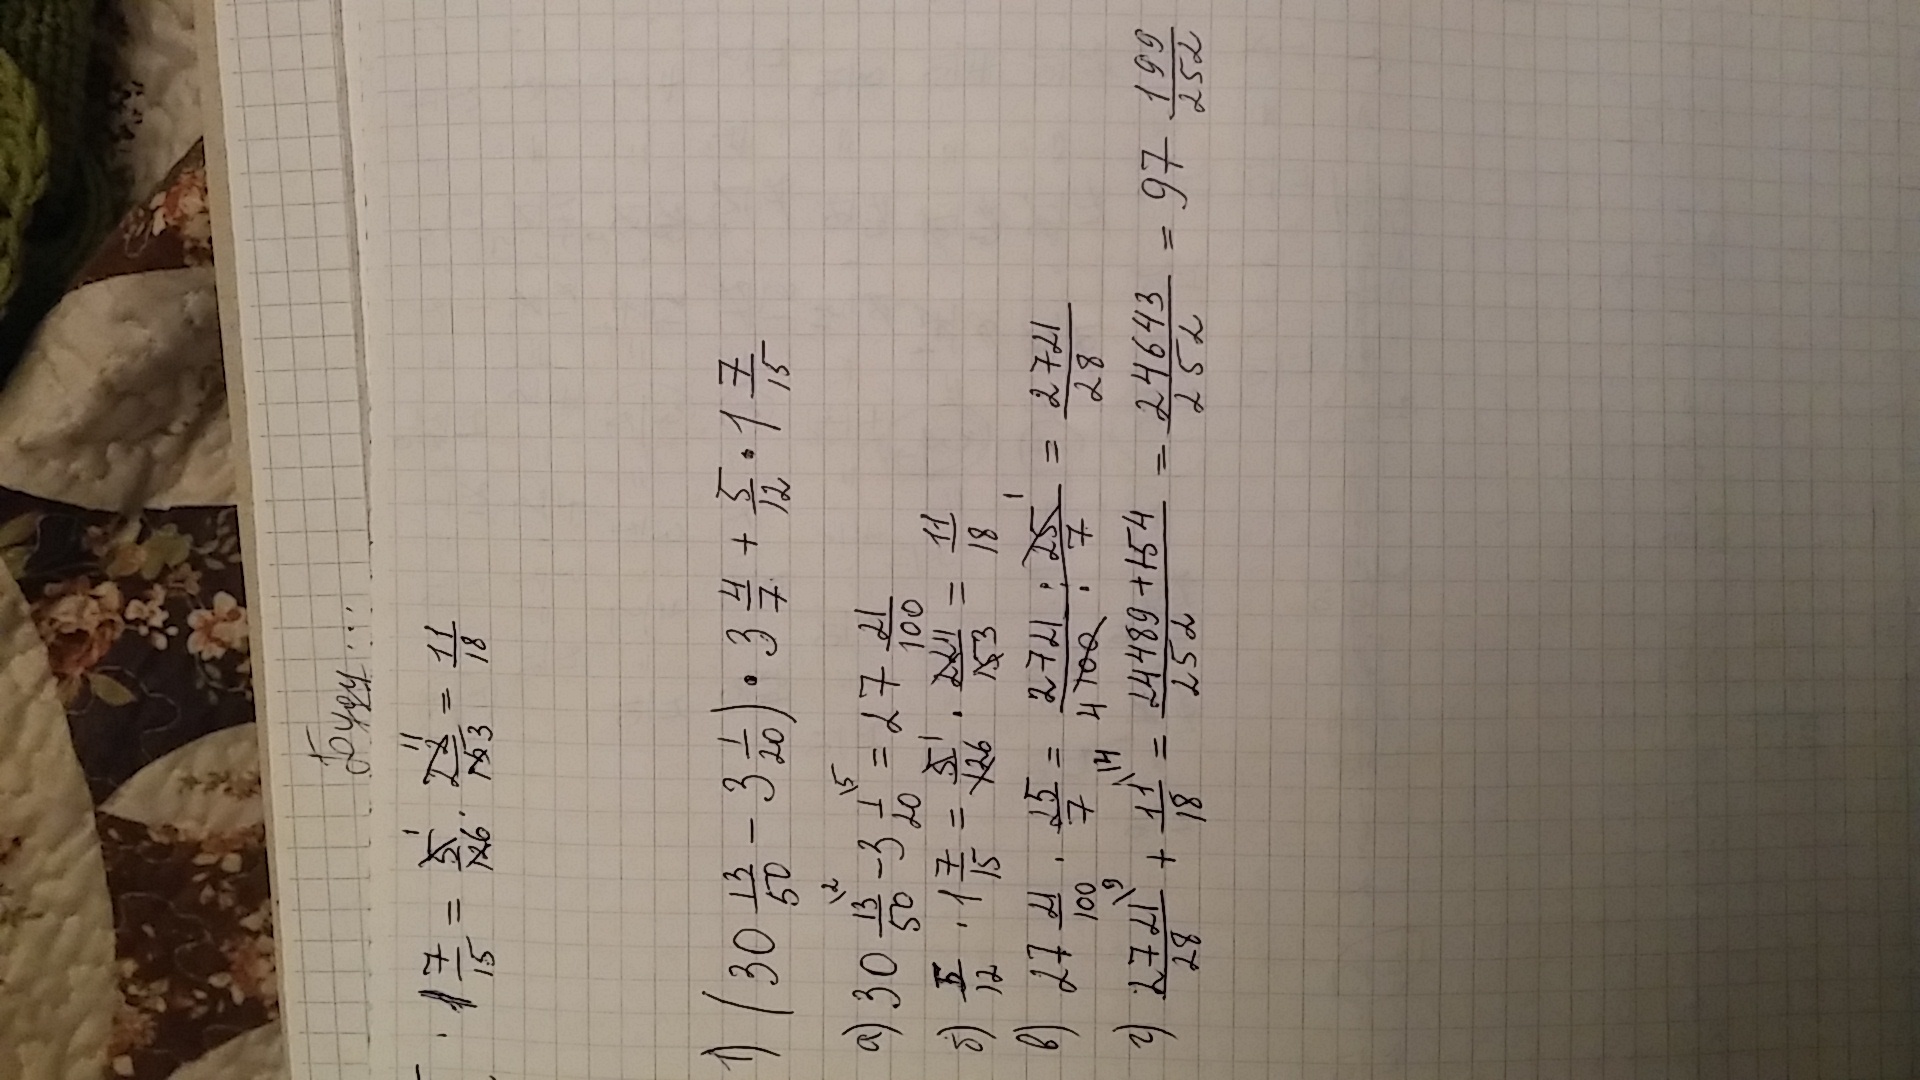 Буду ...
· 1 7/15 = 5/12 6 · 22/15 3 = 11/18
1) (30 13/50 − 3 1/20) · 3 4/7 + 5/12 · 1 7/15
а) 30 13/50 − 3 1/20 = 27 21/100
б) 5/12 · 1 7/15 = 5/12 6 · 22 11/15 3 = 11/18
в) 27 21/100 · 25/7 = 2721 · 25/4 100 · 7 = 2721/28
г) 2721/28 + 11/18 = 24489+154/252 = 24643/252 = 97 199/252